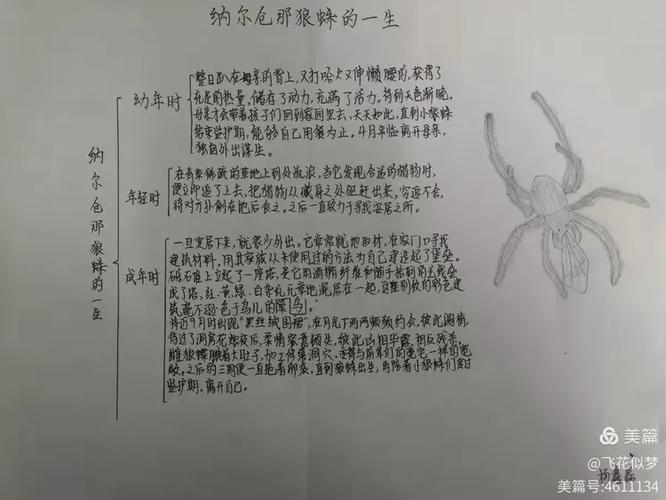 纳尔仓那狼蛛的一生
纳尔仓那狼蛛的一生
幼年时
整日趴在母亲的背上,又打哈欠又伸懒腰的,获得了
充足的热量,储存了动力,充满了活力。待到天色渐晚,
母亲才会带着孩子们回到家园里去,天天如此,直到小狼蛛
结束监护期,能够自己用餐为止。4月来临离开母亲,
独自外出谋生。
年轻时
在有些稀疏的草地上到处流浪,当它发现合适的猎物时,
便立即追了上去,把猎物从藏身之处驱赶出来,穷追不舍,
将对方扑倒在地后食之。之后一直致力于寻找安居之所。
成年时
一旦定居下来,就很少外出。它常常就地取材,在家门口寻找
建筑材料,用其家族从未使用过的方法为自己建造起了堡垒。
碎石堆上立起了一座塔,是它用
成了塔,红、黄、绿、白
筑毫不逊色于鸟儿的窝
待近9月时出现“黑丝绒围裙”,在月光下两两频频约会,彼此调情,
待过了洞房花烛夜后,柔情蜜意顿失,彼此凶相毕露,相互残杀,
雌狼蛛腆着大肚子,加工修葺洞穴,
敞。之后的三周便一直抱着卵袋,直到狼蛛出生,再陪着小狼蛛们度过
监护期,离开自己。
美篇
@飞花似梦
美篇号:4611134